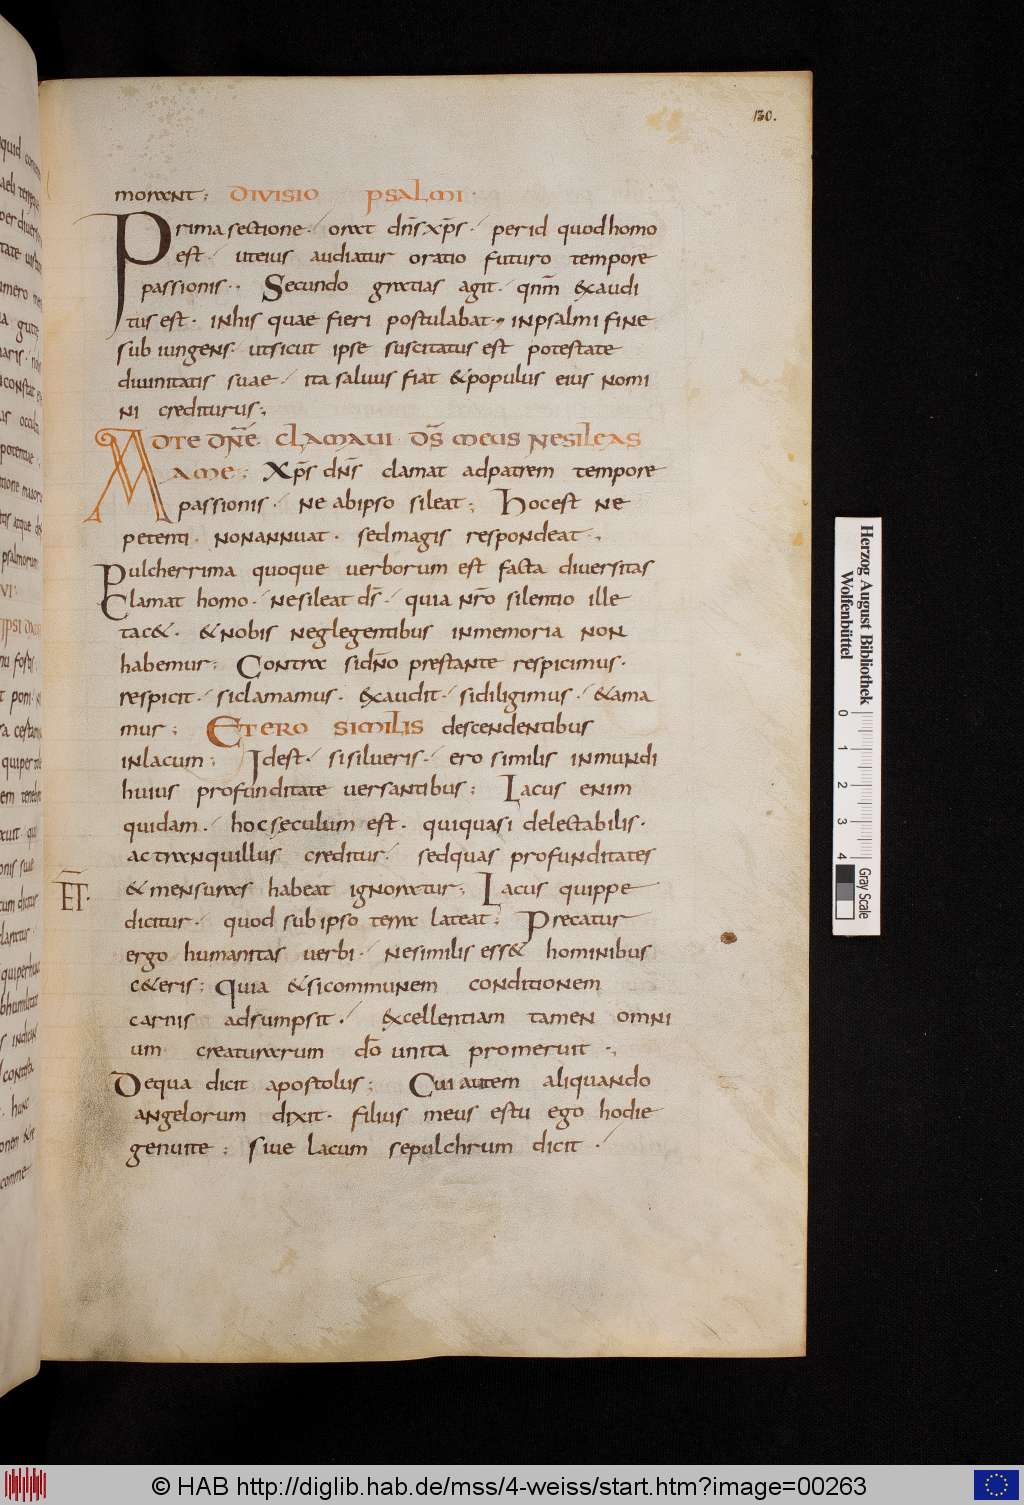 130.
morant; DIVISIO PSALMI
Prima sectione. orat dn̄s xp̄s. per id quod homo
est. uteius audiatur oratio futuro tempore
passionis. Secundo gratias agit. qnm̄ exaudi
tus est. inhis quae fieri postulabat. inpsalmi fine
sub iungens. utsicut ipse suscitatus est potestate
diuinitatis suae. ita saluus fiat &populus eius nomi
ni crediturus;
ADTE DN̄E CLAMAUI DS̄ MEUS NESILEAS
AME; Xp̄s dn̄s clamat adpatrem tempore
passionis. ne abipso sileat; Hocest ne
petenti. nonannuat. sedmagis respondeat.,
Pulcherrima quoque uerborum est facta diuersitas
Clamat homo. nesileat ds̄. quia nr̄o silentio ille
tac&. &nobis neglegentibus inmemoria non
habemur; Contra sidn̄o prestante respicimus.
respicit. siclamamus. exaudit. sidiligimus. &ama
mur; ETERO SIMILIS descendentibus
inlacum; Idest. sisilueris. ero similis inmundi
huius profunditate uersantibus; Lacus enim
quidam. hocseculum est. quiquasi delectabilis.
ac tranquillus creditur. sedquas profunditates
&mensuras habeat ignoratur; Lacus quippe
ET.
dicitur. quod sub ipso terra lateat; Precatur
ergo humanitas uerbi. nesimilis ess& hominibus
c&eris; Quia &sicommunem conditionem
carnis adsumpsit. excellentiam tamen omni
um creaturarum dō unita promeruit.,
Dequa dicit apostolus; Cui autem aliquando
angelorum dixit. filius meus estu ego hodie
genuite; siue lacum sepulchrum dicit.
Herzog August Bibliothek
Wolfenbüttel
0 1 2 3 4
Gray Scale
© HAB http://diglib.hab.de/mss/4-weiss/start.htm?image=00263